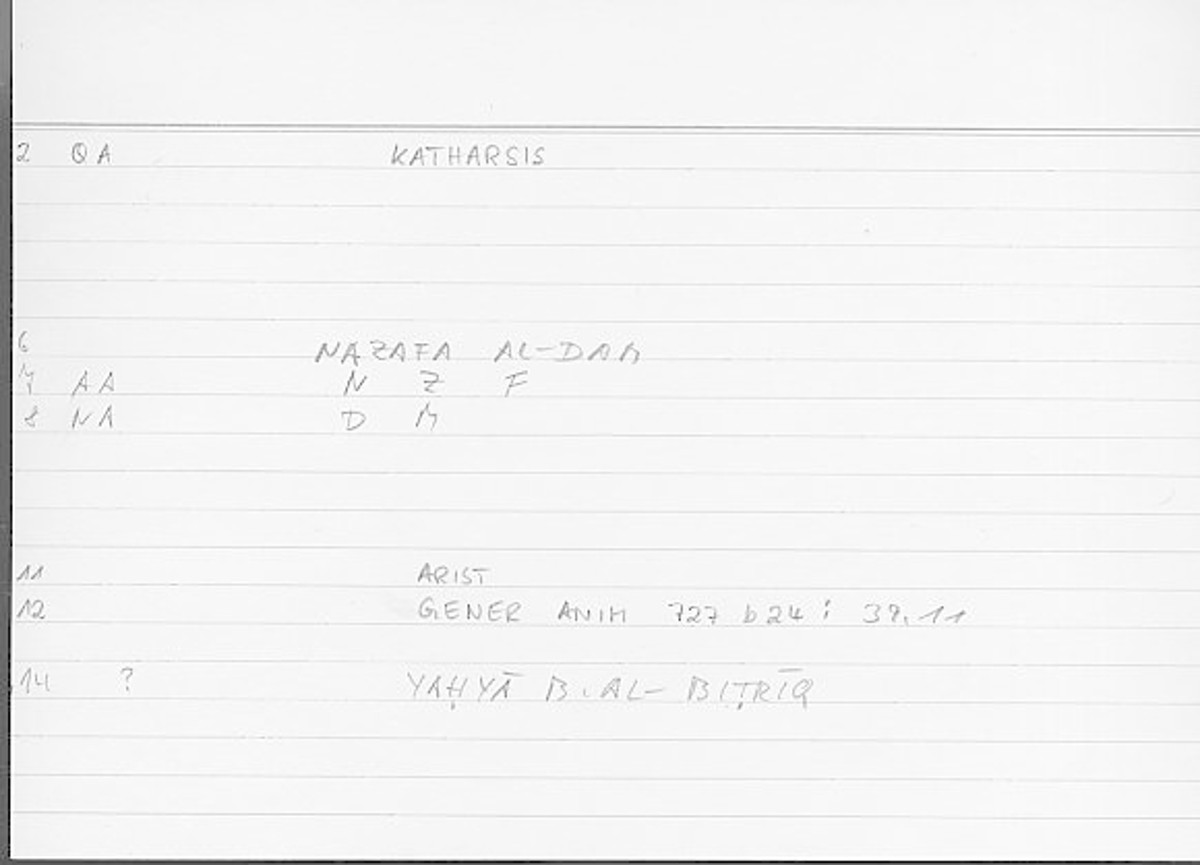 2 QA KATHARSIS
6 NAZAFA AL-DAM
7 AA N Z F
8 NA D M
11 ARIST
12 GENER ANIM 727 b 24 ; 39.11
14 ? YAḤYĀ B. AL- BIṬRĪQ